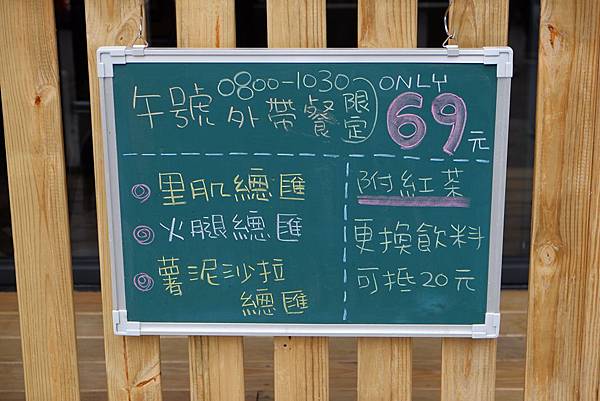 0800-1030 ONLY
午號外帶餐(限定) 69元
里肌總匯
火腿總匯
薯泥沙拉
總匯
附紅茶
更換飲料
可抵20元